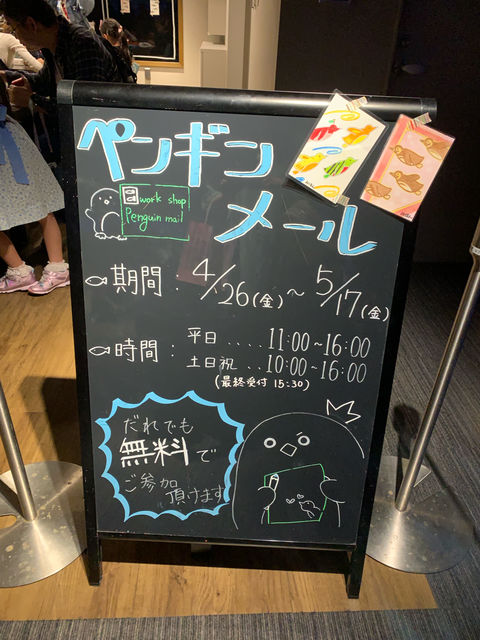 ペンギン
work shop
Penguin mail
メール
期間：4/26(金)～5/17(金)
時間：平日....11:00～16:00
土日祝..10:00～16:00
(最終受付 15:30)
だれでも
無料で
ご参加
頂けます